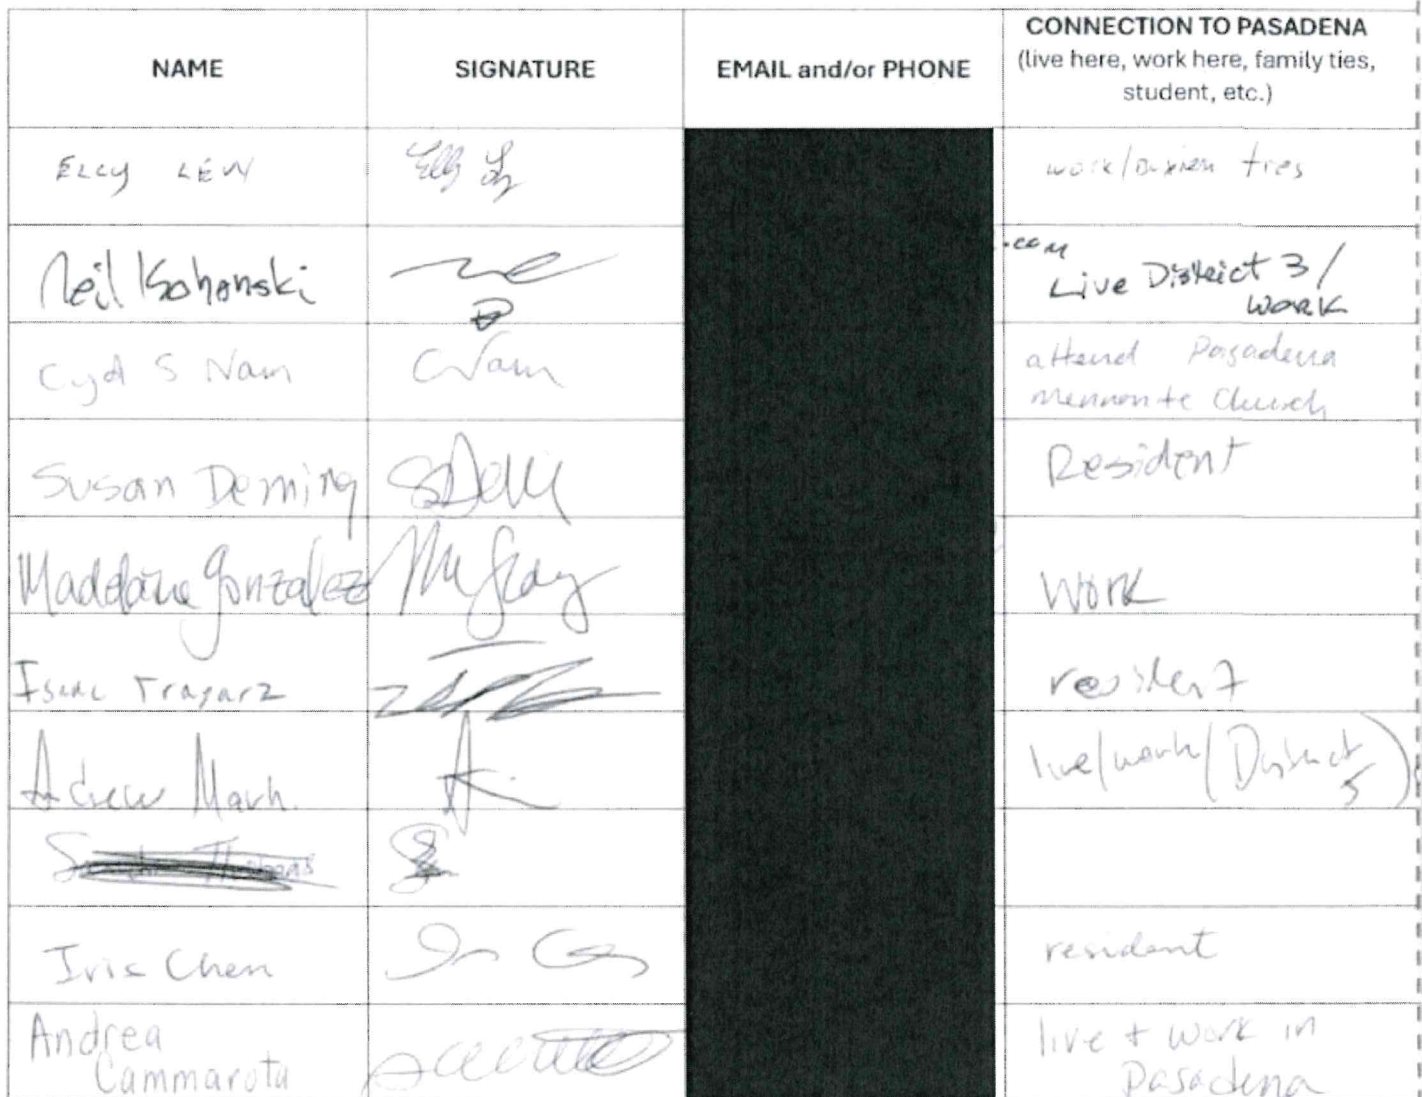 NAME SIGNATURE EMAIL and/or PHONE CONNECTION TO PASADENA
(live here, work here, family ties,
student, etc.)
ELLY LEVY work/ ties
.com
Neil Kohanski Live District 3/
work
Cyd S Nam CNam attend Pasadena
Mennonite Church
Susan Deming Resident
Madelaine Gonzalez Work
Isaac resident
Andrew live/work (District
5)
Iris Chen resident
Andrea live + work in
Cammarota Pasadena